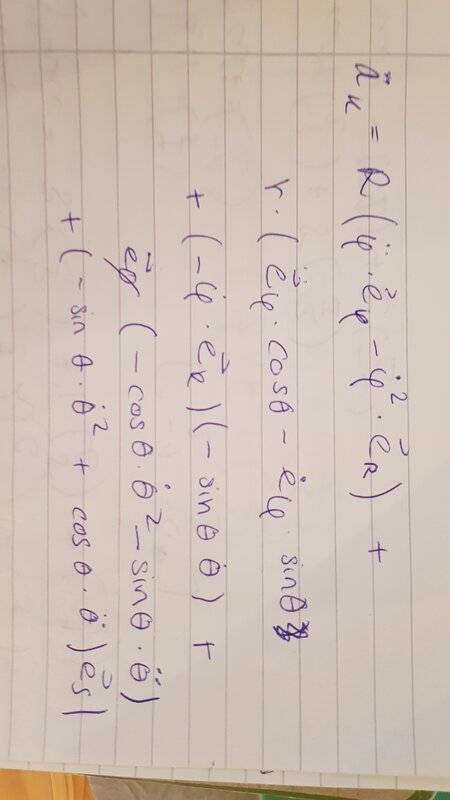 ä_k = R(φ̈·e⃗_φ − φ̇²·e⃗_R) +
r·(ė⃗_φ·cosθ − ė_φ sinθ
+ (−φ̇·e⃗_R)(−sinθ θ̇) +
e⃗_φ (−cosθ·θ̇² − sinθ·θ̈)
+ (−sinθ·θ̇² + cosθ·θ̈) e⃗_s)